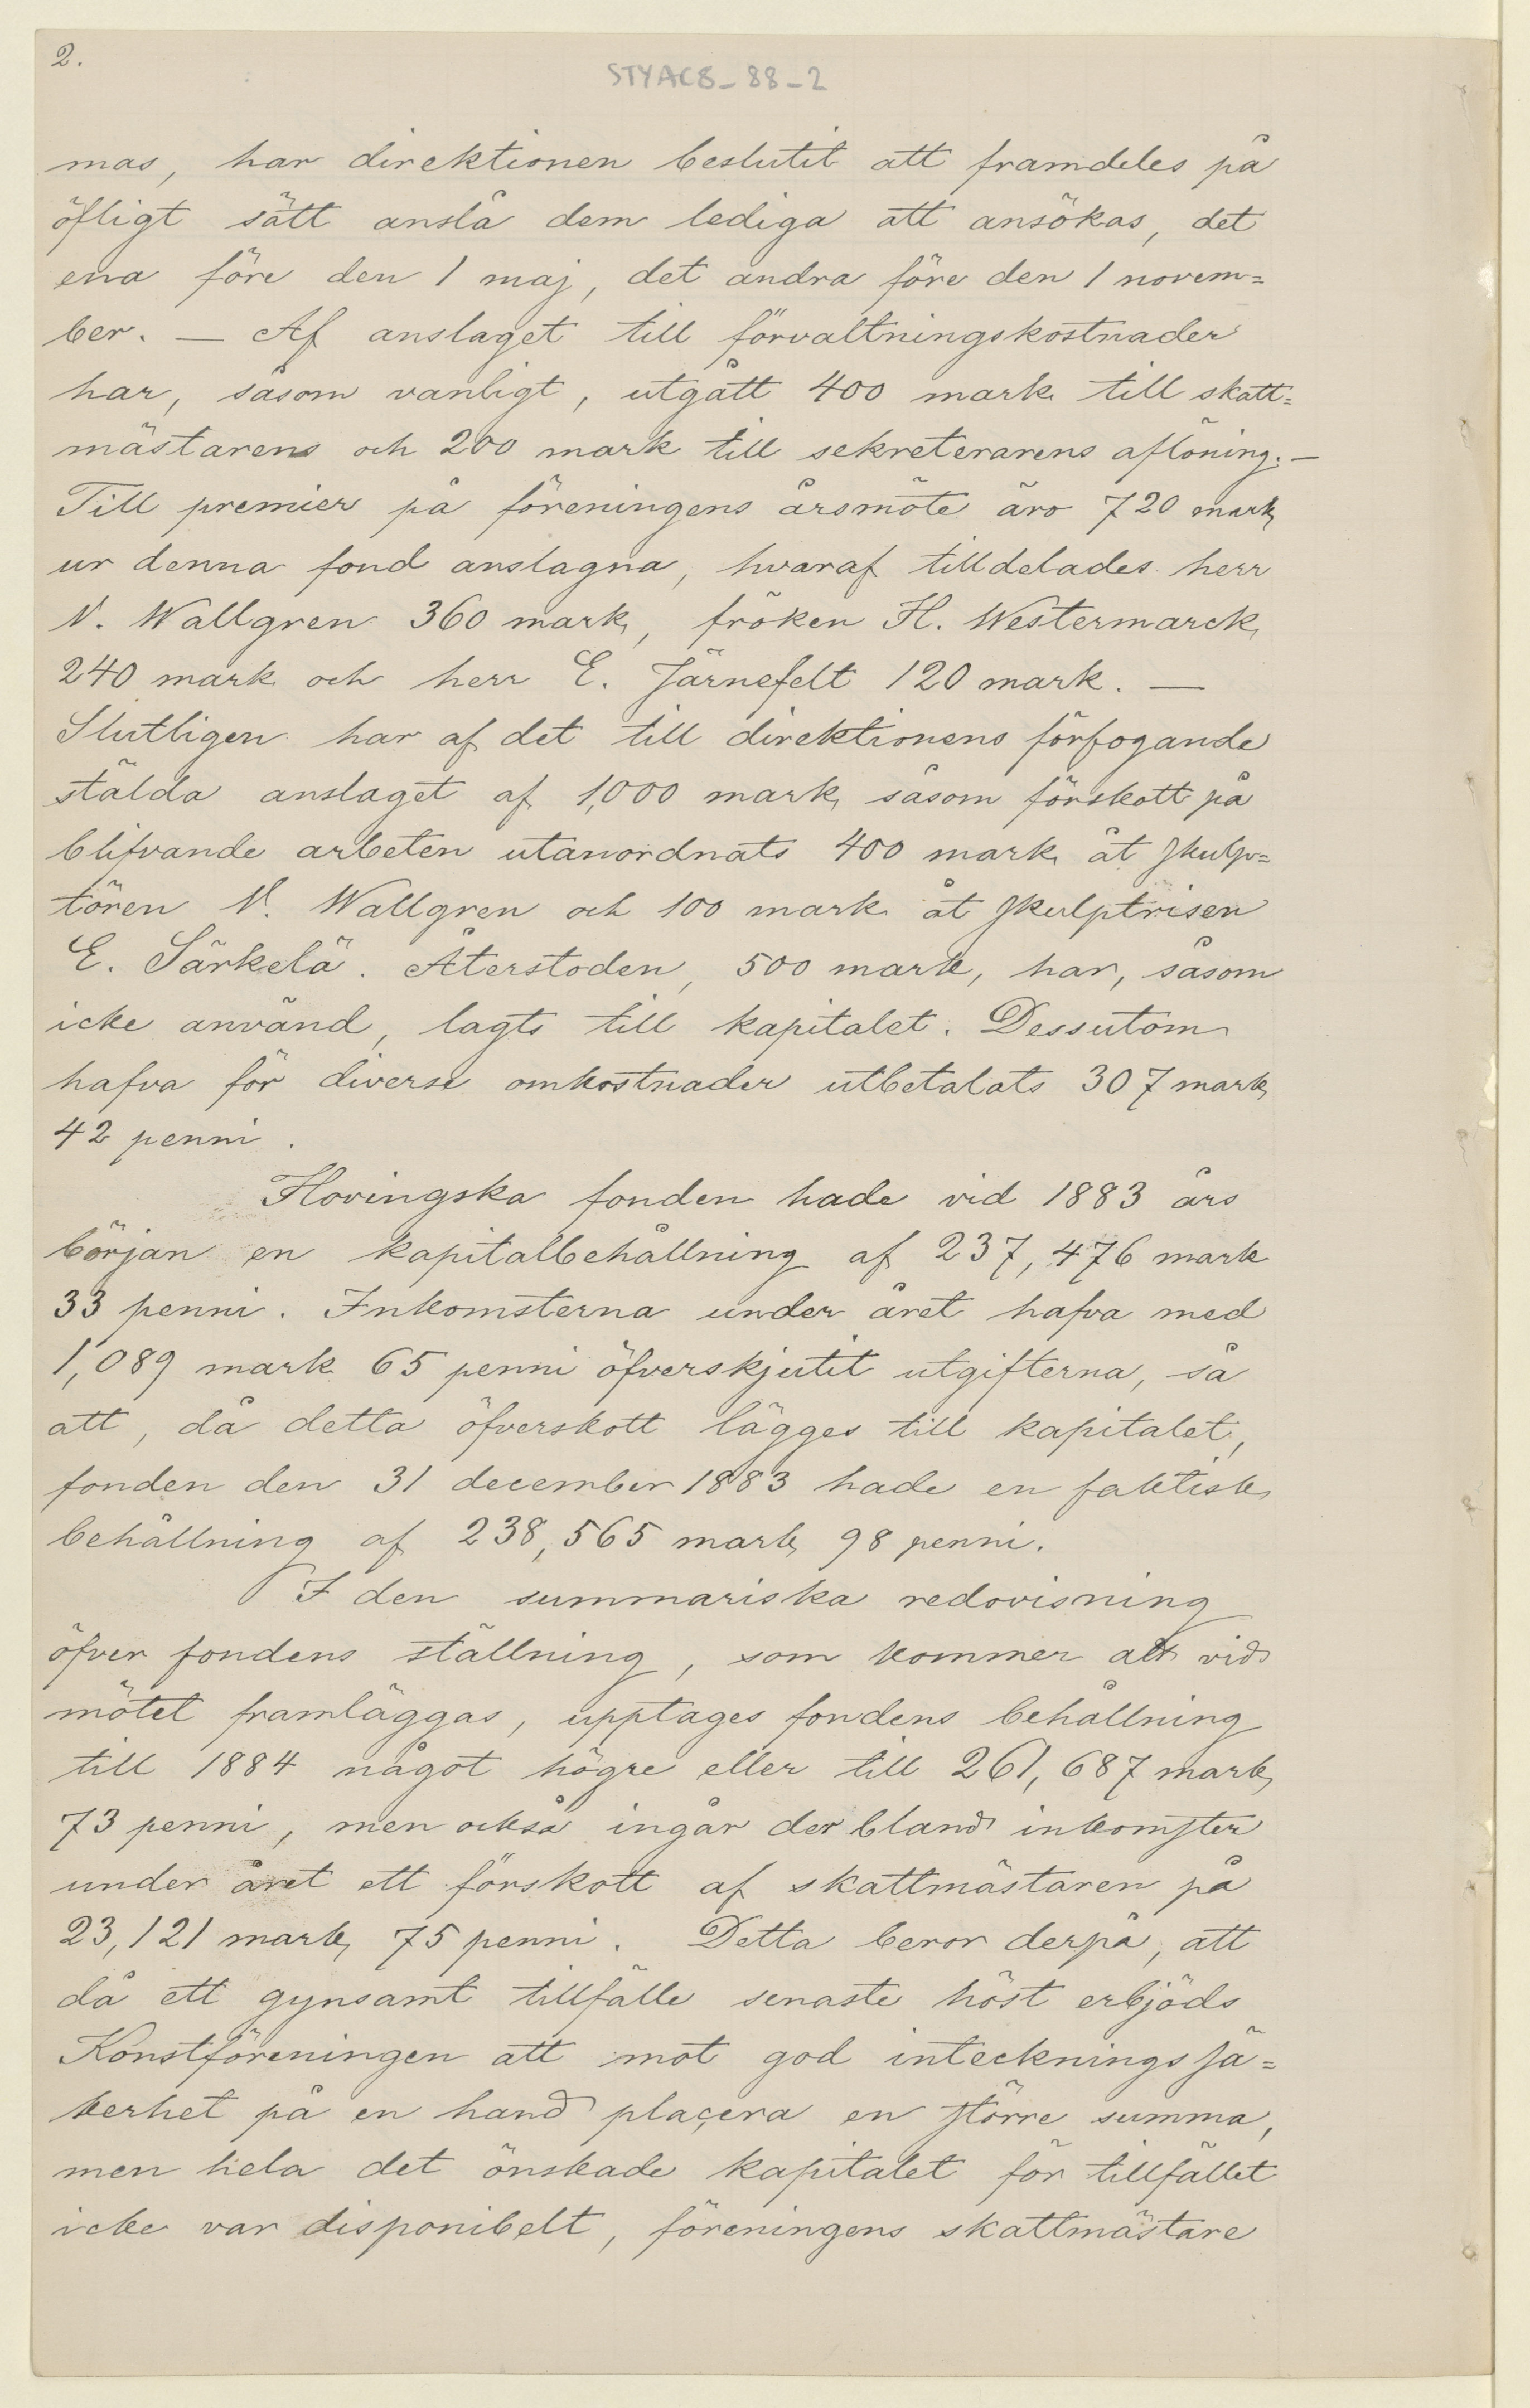 2.
STYAC8_88_2
mas, har direktionen beslutit att framdeles på
öfligt sätt anslå dem lediga att ansökas, det
ena före den 1 maj, det andra före den 1 novem=
ber. — Af anslaget till förvaltningskostnader
har, såsom vanligt, utgått 400 mark till skatt=
mästarens och 200 mark till sekreterarens aflöning. —
Till premier på föreningens årsmöte äro 720 mark
ur denna fond anslagna, hvaraf tilldelades herr
V. Wallgren 360 mark, fröken H. Westermarck
240 mark och herr E. Järnefelt 120 mark. —
Slutligen har af det till direktionens förfogande
stälda anslaget af 1,000 mark såsom förskott på
blifvande arbeten utanordnats 400 mark åt skulp=
tören V. Wallgren och 100 mark åt skulptrisen
E. Särkelä. Återstoden, 500 mark, har, såsom
icke använd, lagts till kapitalet. Dessutom
hafva för diverse omkostnader utbetalats 307 mark
42 penni.
Hovingska fonden hade vid 1883 års
början en kapitalbehållning af 237,476 mark
33 penni. Inkomsterna under året hafva med
1,089 mark 65 penni öfverskjutit utgifterna, så
att, då detta öfverskott lägges till kapitalet,
fonden den 31 december 1883 hade en faktisk
behållning af 238,565 mark 98 penni.
I den summariska redovisning
öfver fondens ställning, som kommer att vid
mötet framläggas, upptages fondens behållning
till 1884 något högre eller till 261,687 mark
73 penni, men också ingår der bland inkomster
under året ett förskott af skattmästaren på
23,121 mark 75 penni. Detta beror derpå, att
då ett gynsamt tillfälle senaste höst erbjöds
Konstföreningen att mot god inteckningssä=
kerhet på en hand plaçera en större summa,
men hela det önskade kapitalet för tillfället
icke var disponibelt, föreningens skattmästare